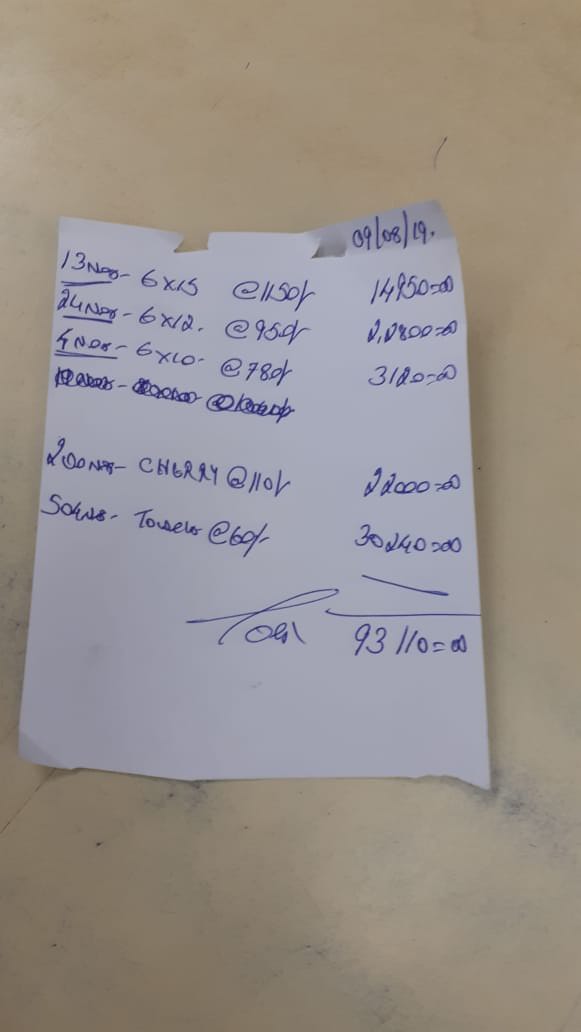 09/08/19.
13Nos- 6x15 @1150/- 14950=00
24Nos- 6x12. @950/- 2,2800=00
4Nos- 6x10- @780/- 3120=00
200Nos- CHERRY @110/- 22000=00
504Nos- Towels @60/- 30240=00
Total 93110=00